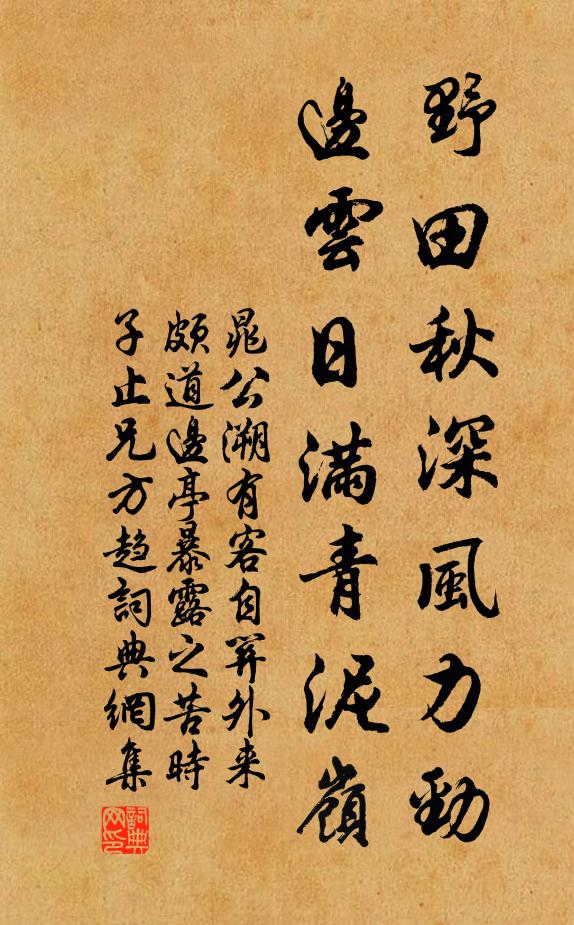 野田秋深風力勁
邊雲日滿青泥嶺
晁公溯有客自關外来
頗道邊亭暴露之苦時
子止兄方趨詞典網集
詞典网印